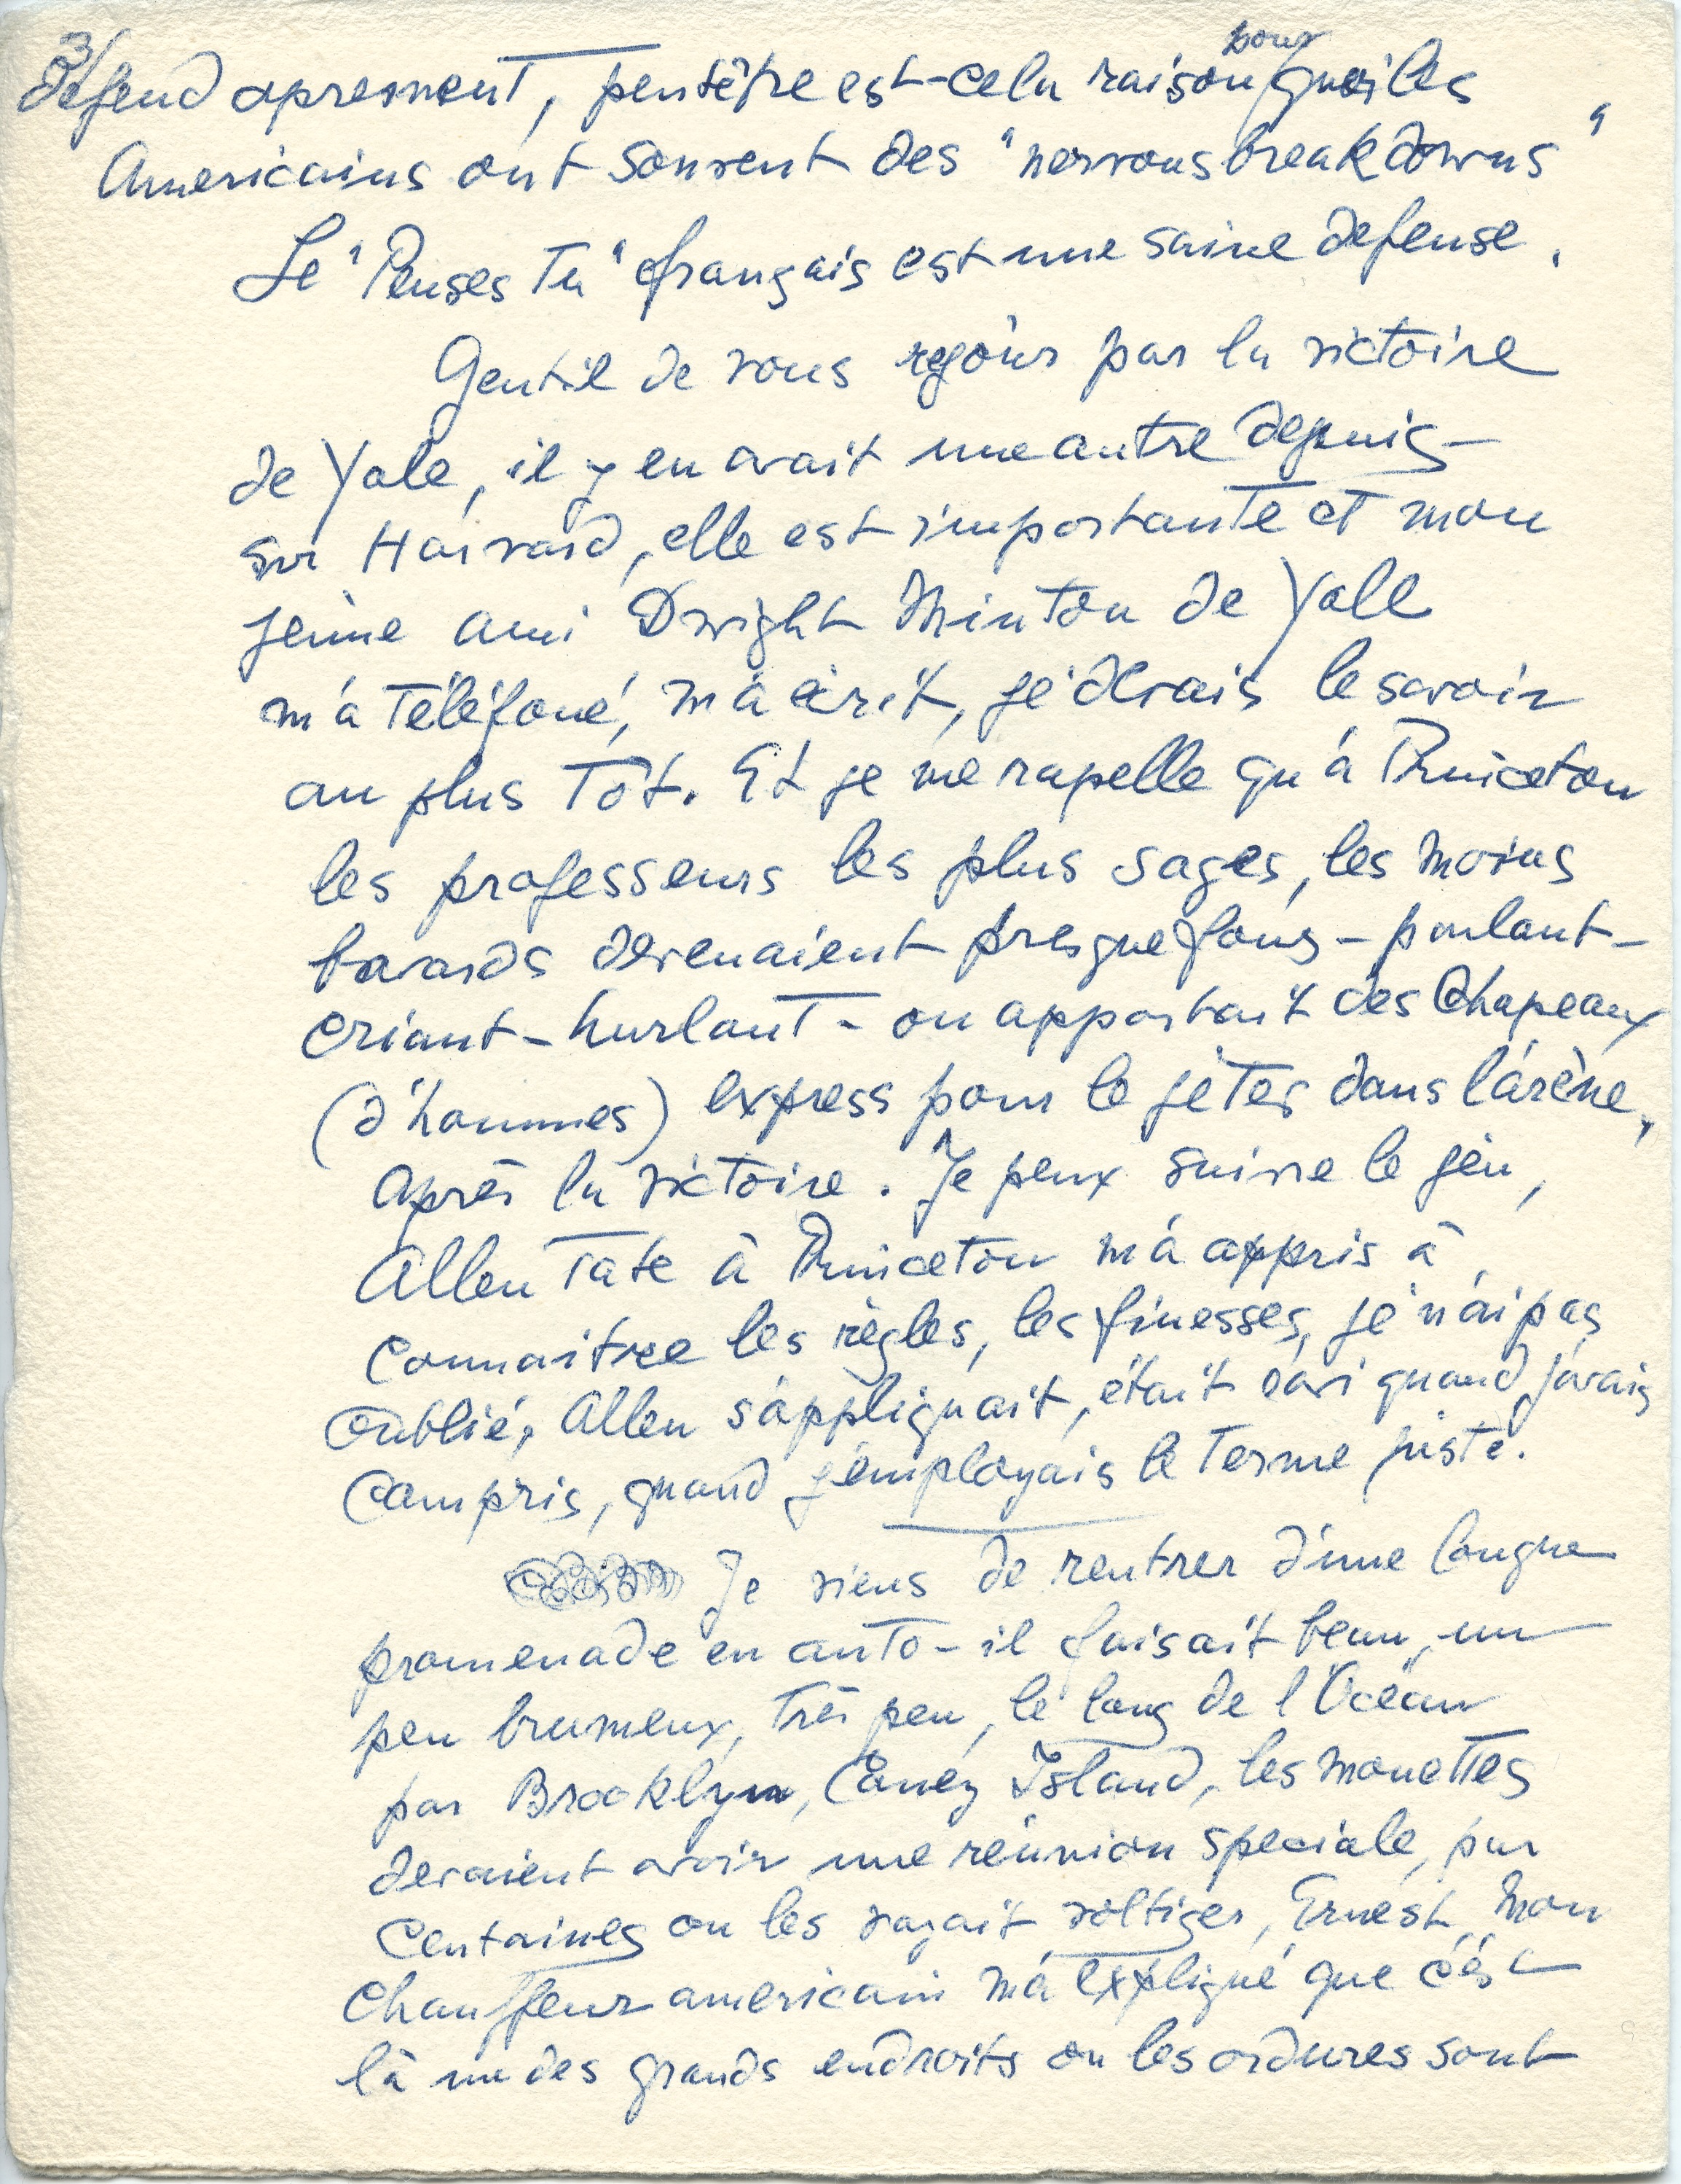 3/
défend aprement, peutêtre est-ce la raison pour quoi les
Americains ont souvent des "nervous breakdowns"
Le "Penses Tu" français est une saine defense.
Gentil de vous rejouir par la victoire
de Yale, il y en avait une autre depuis –
sur Harvard, elle est importante et mon
jeune ami Dwight Minton de Yale
m'a téléfoné, m'a écrit, je devais le savoir
au plus Tôt. Et je me rapelle qu'à Princeton
les professeurs les plus sages, les moins
bavards devenaient presque fous – parlant –
criant – hurlant – on apportait des Chapeaux
(d'hommes) express pour le jeter dans l'arène,
après la victoire. Je peux suivre le jeu,
Allen Tate à Princeton m'a appris à
connaitre les règles, les finesses, je n'ai pas
oublié, Allen s'appliquait, était ravi quand j'avais
compris, quand j'employais le Terme juste.
Je viens de rentrer d'une longue
promenade en auto – il faisait beau, un
peu brumeux, très peu, le long de l'Océan
par Brooklyn, Coney Island, les mouettes
devaient avoir une réunion speciale, par
centaines on les voyait voltiger, Ernest, mon
chauffeur americain m'a expliqué que c'est
là un des grands endroits ou les ordures sont